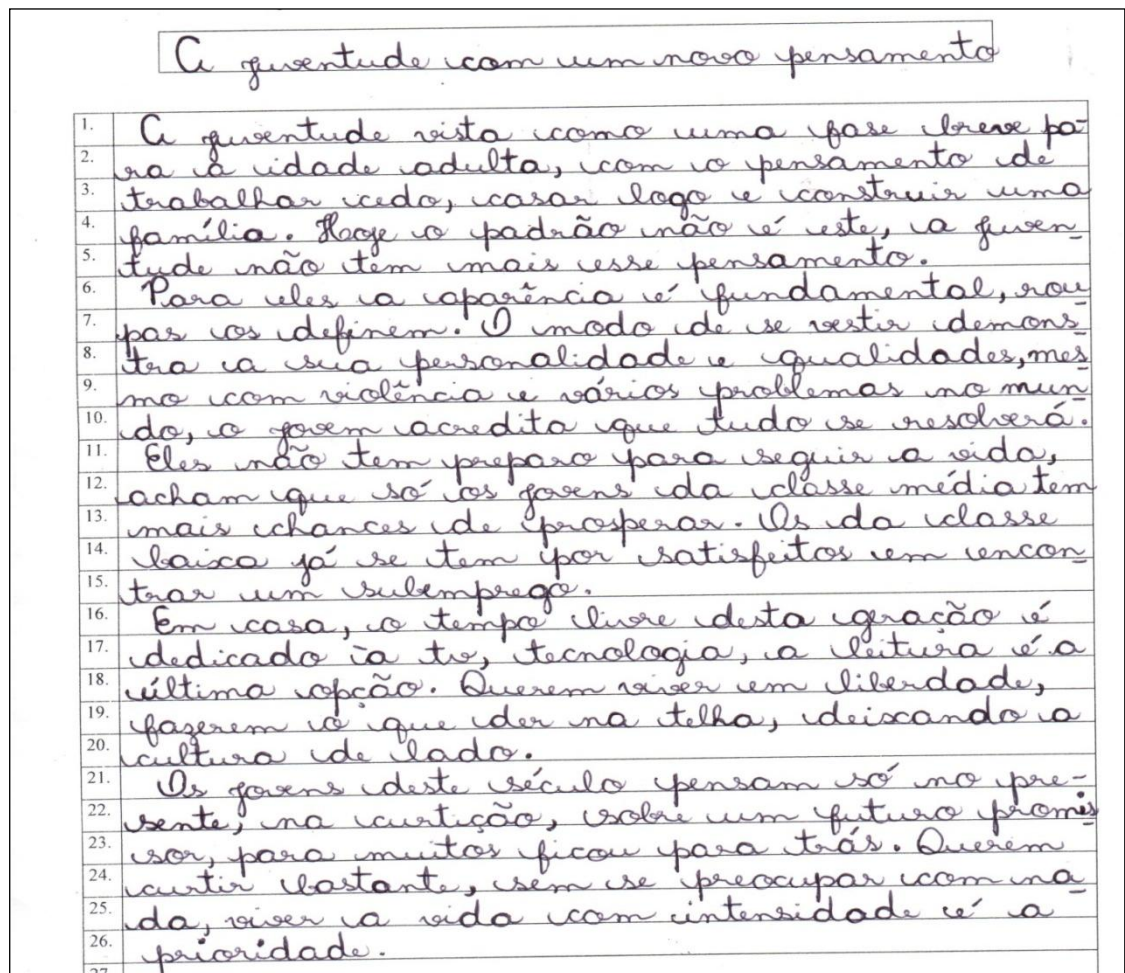 A juventude com um novo pensamento
1. A juventude vista como uma fase breve pa-
2. ra a idade adulta, com o pensamento de
3. trabalhar cedo, casar logo e construir uma
4. família. Hoje o padrão não é este, a juven_
5. tude não tem mais esse pensamento.
6. Para eles a aparência é fundamental, rou_
7. pas os definem. O modo de se vestir demons_
8. tra a sua personalidade e qualidades, mes_
9. mo com violência e vários problemas no mun_
10. do, o jovem acredita que tudo se resolverá.
11. Eles não tem preparo para seguir a vida,
12. acham que só os jovens da classe média tem
13. mais chances de prosperar. Os da classe
14. baixa já se tem por satisfeitos em encon_
15. trar um subemprego.
16. Em casa, o tempo livre desta geração é
17. dedicado a tv, tecnologia, a leitura é a
18. última opção. Querem viver em liberdade,
19. fazerem o que der na telha, deixando a
20. cultura de lado.
21. Os jovens deste século pensam só no pre-
22. sente, na curtição, sobre um futuro promis
23. sor, para muitos ficou para trás. Querem
24. curtir bastante, sem se preocupar com na_
25. da, viver a vida com intensidade é a
26. prioridade.
27.